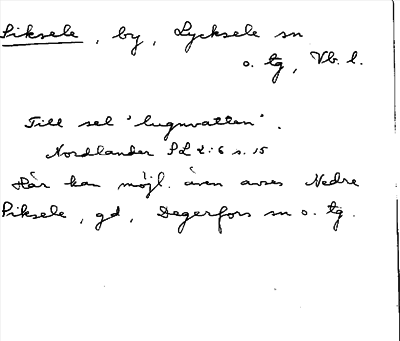 Siksele, by, Lycksele sn
o. tg, Vb. l.
Till sel 'lugnvatten'.
Nordlander SL 2:6 s. 15
Här kan möjl. även avses Nedre
Siksele, gd, Degerfors sn o. tg.